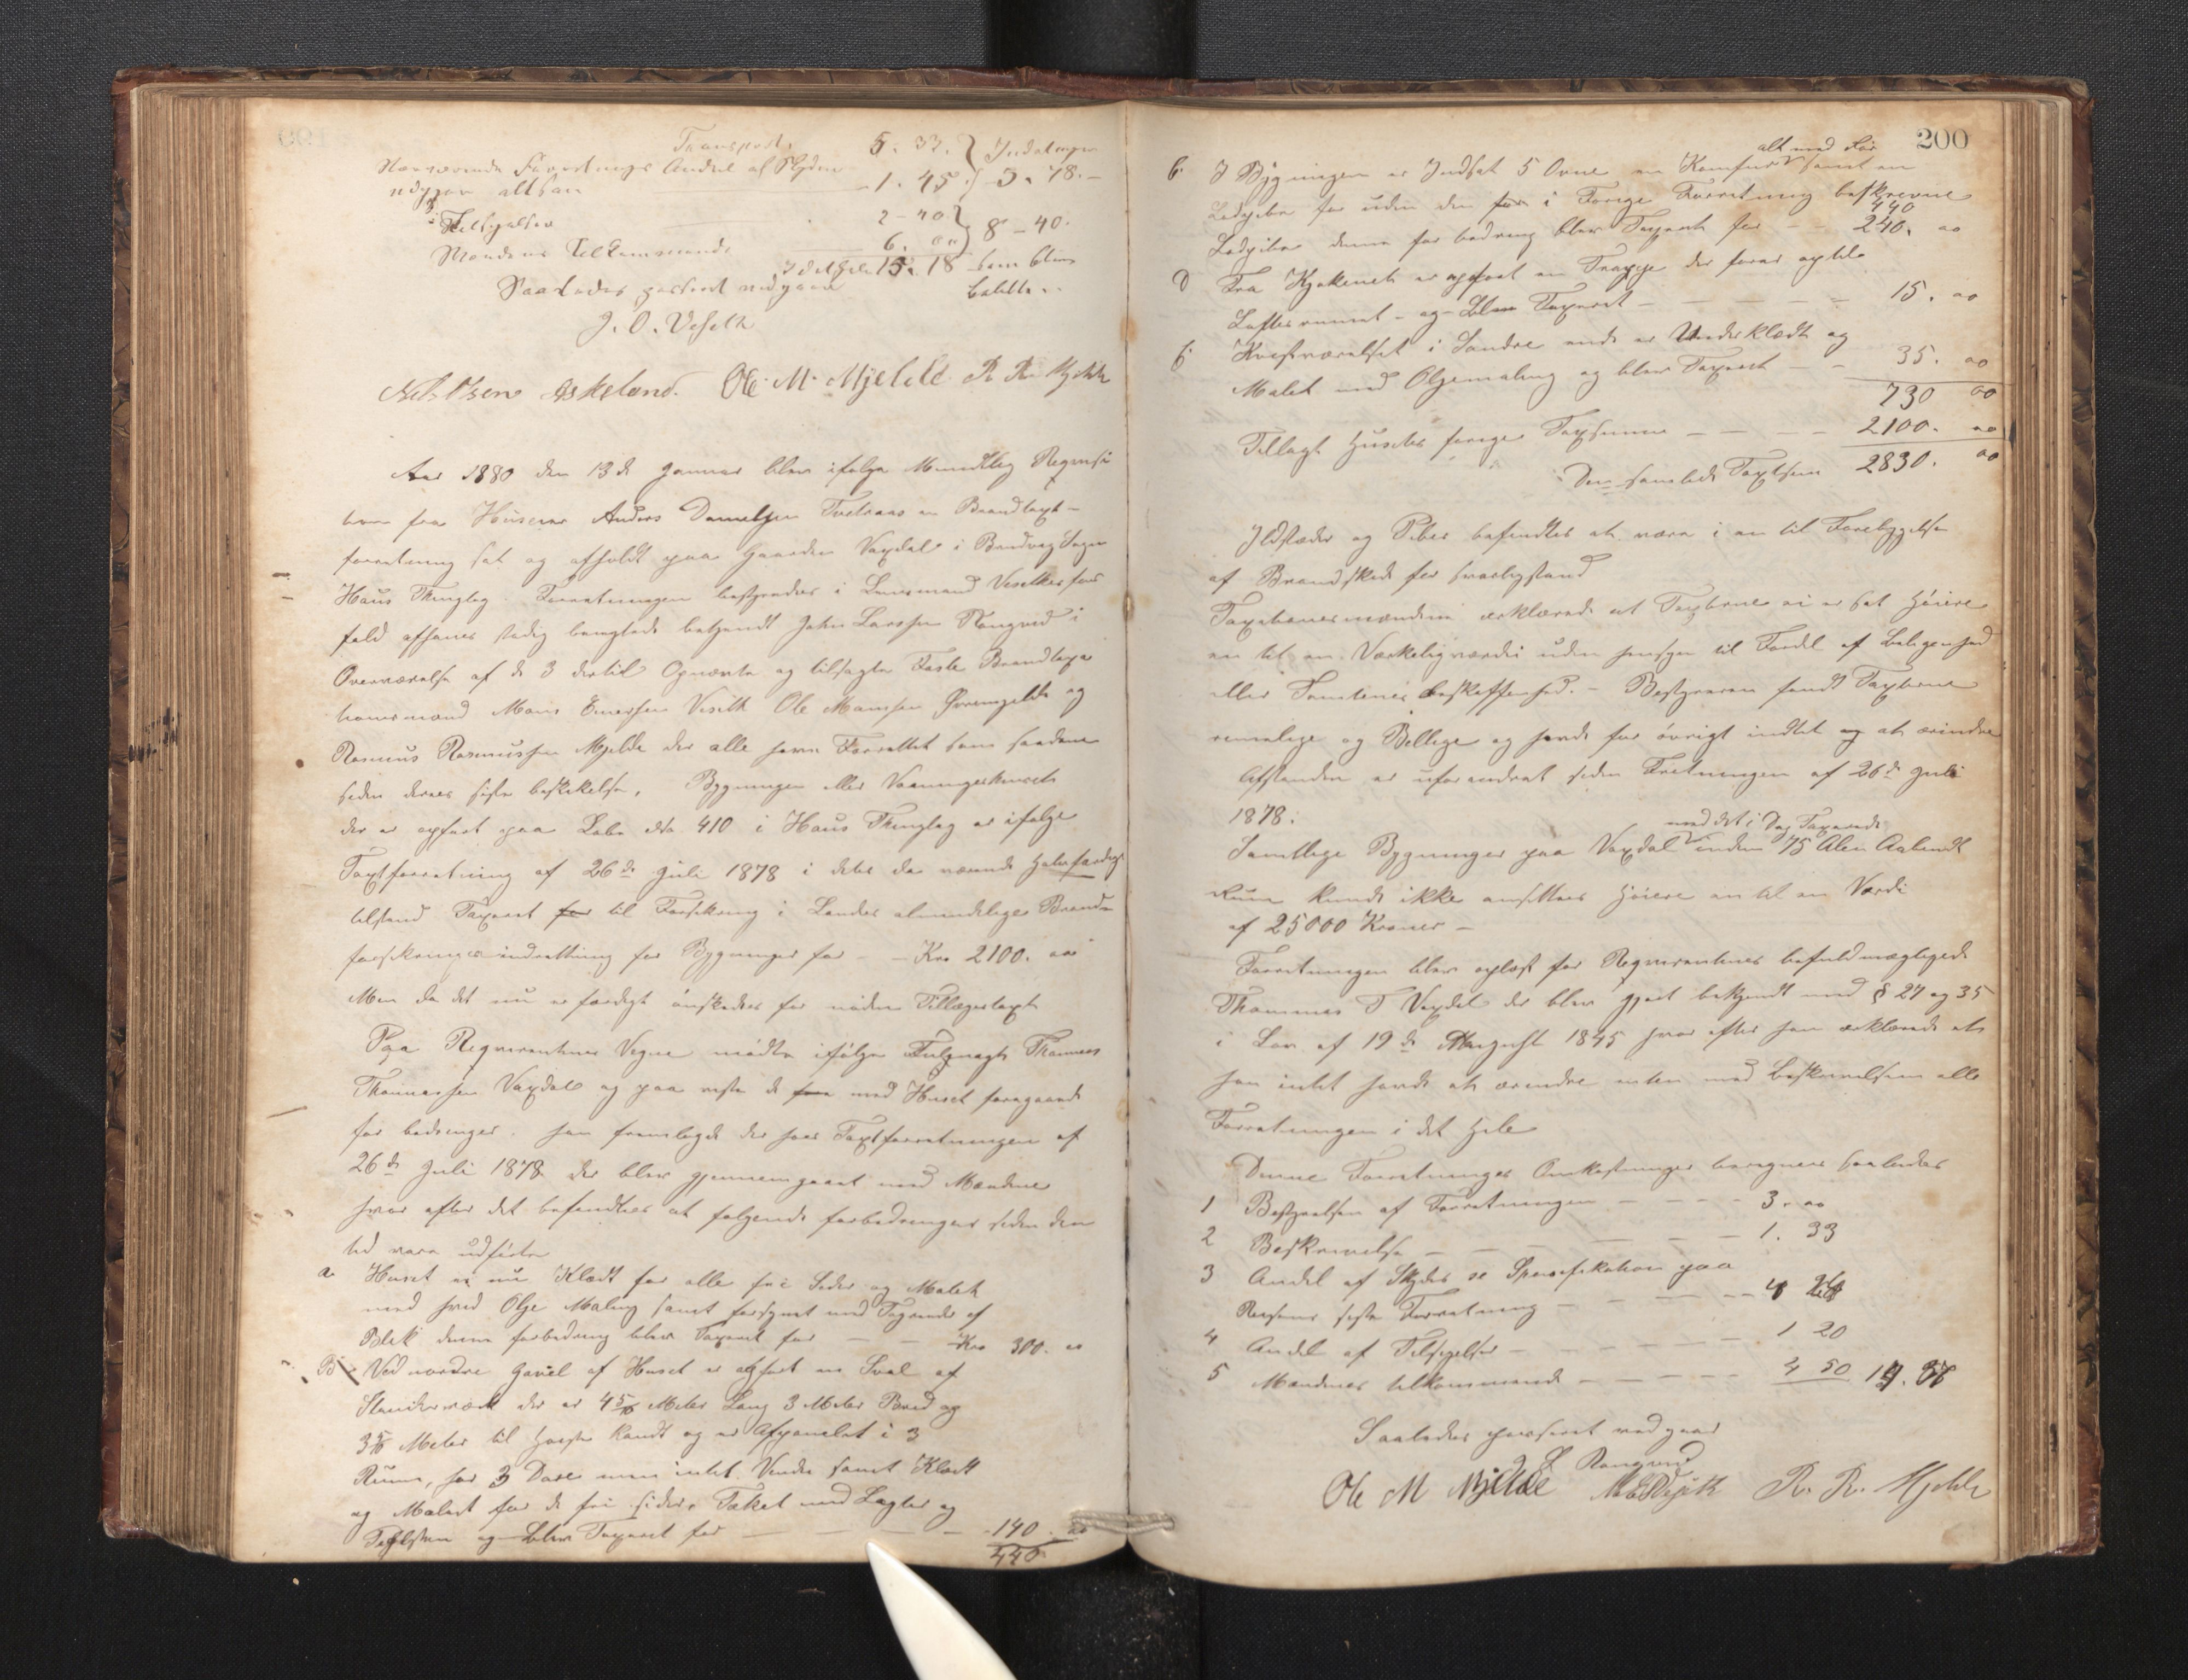 Transport 5. 33.
Nærværende Forretnings Andel af Skydsen Indtægen
udgjør altsaa 1. 45. 5. 78.
Tilsigelsen 2 - 40.
Mændenes Tilkommende 6. 00 8 - 40.
Idethele 15. 18 som blev
Saaledes passeret vedgaaes betalt.
J. O. Veseth
Nels Olsen Askeland. Ole M. Mjelde R. R. Mjelde
Aar 1880 den 13de Januar blev ifølge Mundtlig Reqvisi
tion fra Huseier Anders Danielsen Tveteraas en Brandtaxt-
forretning sat og afholdt paa Gaarden Vaxdal i Bruvig Sogn
Haus Thinglag. Forretningen bestyredes i Lensmand Veseths for
fald af hans stedig beeigtede betjendt John Larssen Rongved i
Overværelse af de 3 dertil Opnævnte og tilsagte Faste Brandtaxa
tionsmænd Mons Einersen Viseth Ole Monsen Øvremjelde og
Rasmus Rasmussen Mjelde der alle have Forrettet som saadane
siden deres sidste beskikkelse. Bygningen eller Vaaningshuset
der er opført paa Løbe No 410 i Haus Thinglag er ifølge
Taxtforretning af 26de Juli 1878 i dets da værende Halvfærdige
tilstand Taxeret for til Forsikring i Landets almindelige Brand-
forsikringsindretning for Bygninger for - - Kr. 2100. 00
Men da det nu er færdigt ønskedes for nøden Tillægstaxt
Paa Reqvirentens Vegne mødte ifølge Fulmagt Thommas
Thomassen Vaxdal og paa viste de foru med Huset foregaaede
for bedringer. Han fremlagde der hos Taxtforretningen af
26de Juli 1878 der blev gjennemgaaet med Mændene
hvor efter det befandtes at følgende forbedringer siden den
tid vare udførte
a. Huset er nu Klædt for alle fri Sider og Malet
med hvid Olje Maling samt forsynet med Tagrende af
Blik denne forbedring blev Taxeret for - - Kr. 300. 00
B Ved nordre Gavel af Huset er opført en Sval af
Stenderværk der er 4 5/6 Meter Lang 3 Meter Bred og
3 5/6 Meter til Høieste Kandt og er Afpanelet i 3
Rumm, har 3 Døre men intet Vindu samt Klædt
og Malert for de fri sider. Tækt med Lægter og
Teglsten og blev Taxeret for - - - 140. 00
440
200
alt med Rør
C. I Bygningen er Indsat 5 Ovne en Komfur samt en
Ledpibe for uden den før i Forige Forretning beskrevne
440
Ledpibe denne for bedring blev Taxeret for - - 240. 00
D Fra Kjøkenet er opført en Trappe der fører op til
Loftsrummet - og blev Taxeret - - - - - 15. 00
E Kvistværelset i Søndre ende er Underklædt og
Malet med Oljemaling og blev Taxeret - 35. 00
730 00
Tillagt Husets forige Taxtsumme - - - - 2100. 00
Den samlede Taxtsum 2830. 00
Ildsteder og Piber befandtes at være i en til Forebyggelse
af Brandskade forsvarlig stand
Taxationsmændene erklærede at Taxterne ei er sat Høiere
en til en Verkelig værdi uden hensyn til Fordel af beligenhed
eller Tomtenes beskaffenhed. - Bestyreren fandt Taxterne
rimelige og Bellige og havde for øvrigt indtet og at erindre
Afstanden er uforandret siden Fretningen af 26de Juli
1878.
med det i Dag Taxerede
Samtlige Bygninger paa Vaxdal inden 75 Alen Aabendt
Rum kunde ikke ansettes Høiere en til en Værdi
af 25000 Kroner -
Forretningen blev oplæst for Reqvirentens befuldmægtigede
Thommas T Vaxdal der blev gjort bekjendt med § 27 og 35
i Lov af 19de August 1845 hvor efter han erklærede at
han intet havde at erindre enten med beskrivelsen eller
Forretningen i det Hele
Denne Forretnings Omkostninger beregnes saaledes
1 Bestyrelsen af Forretningen - - - - 3. 00
2 Beskrivelse - - - - - 1. 33
3 Andel af Skyds se Spesifikation paa
Reisens siste Forretning - - - - - 4
4 Andel af Tilsigelser - - - - - 1 20
5 Mændenes tilkommende - - - - - 4 50 14.
Saaledes passeret vedgaaes
J L Rongved
Ole M Mjelde M E Veseth R. R. Mjelde